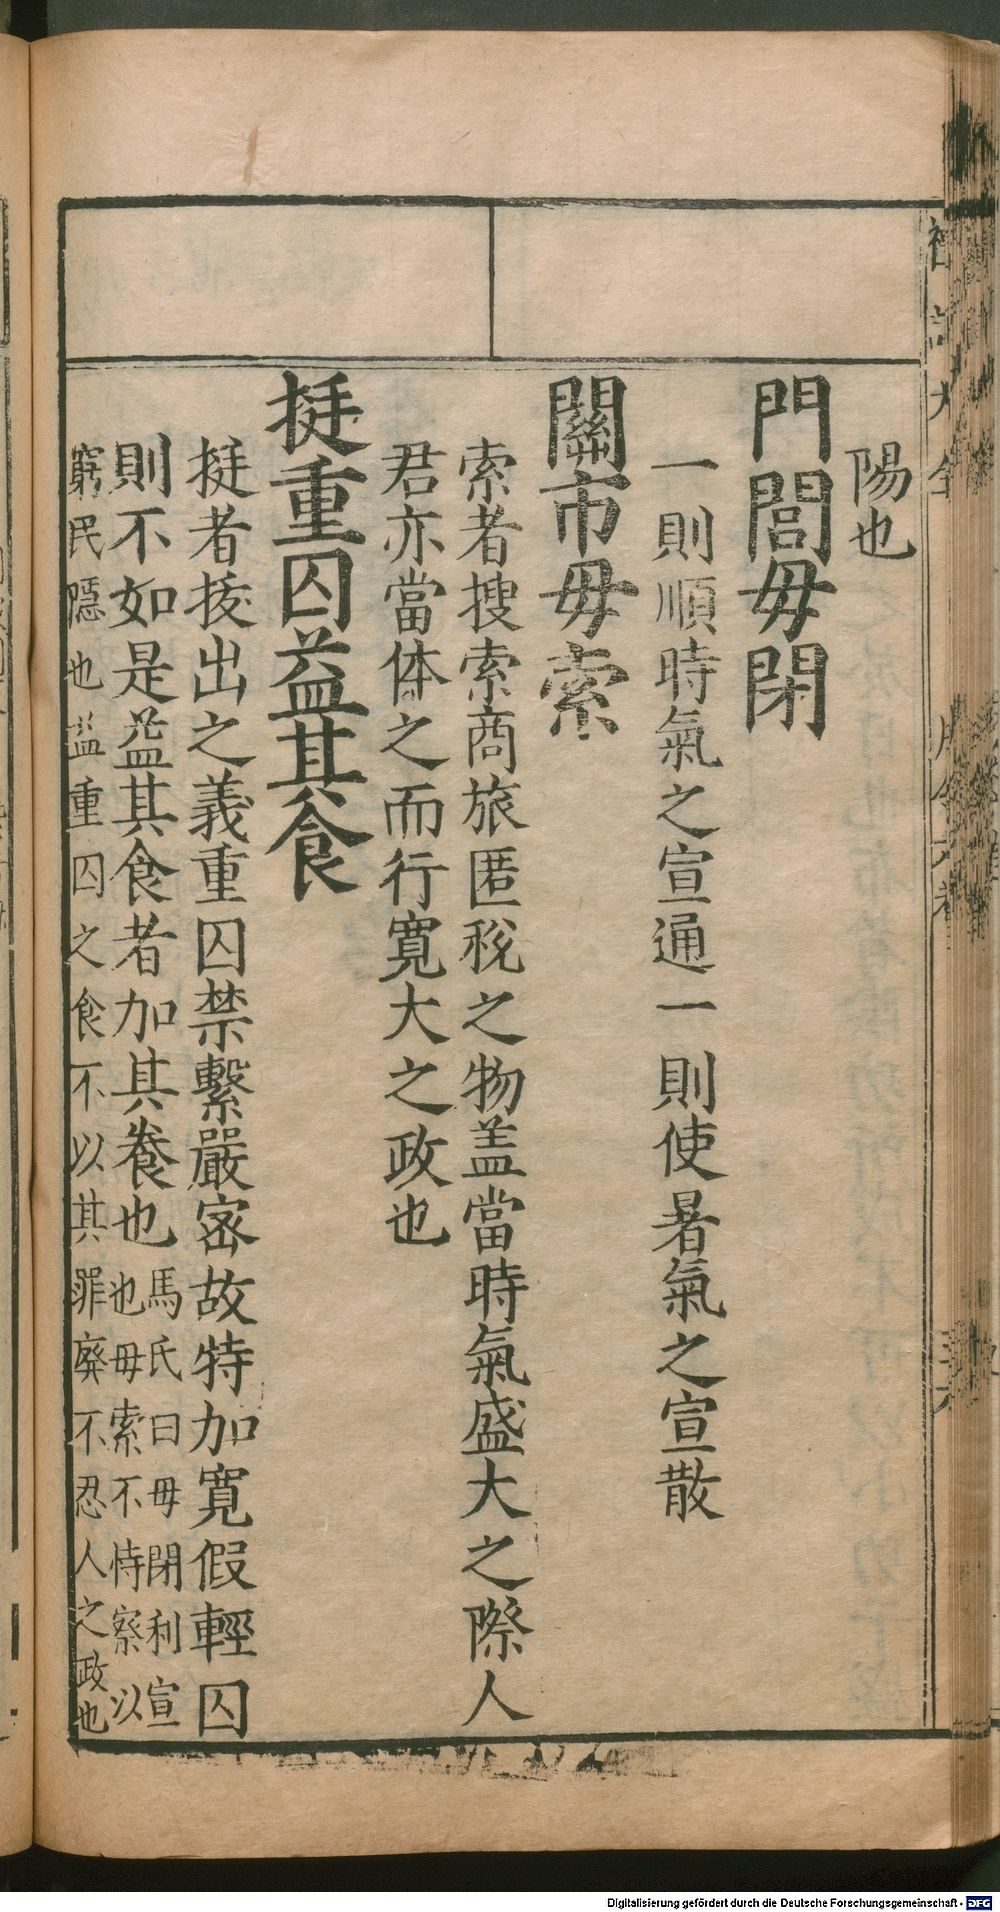 陽也
門閭毋閉
一則順時氣之宣通一則使暑氣之宣散
關市毋索
索者搜索商旅匿稅之物盖當時氣盛大之際人
君亦當体之而行寬大之政也
挺重囚益其食
挺者拔出之義重囚禁繫嚴宻故特加寬假輕囚
則不如是益其食者加其養也
馬氏曰毋閉利宣
也毋索不恃察以
窮民隱也益重囚之食不以其罪廢不忍人之政也
Digitalisierung gefördert durch die Deutsche Forschungsgemeinschaft - DFG